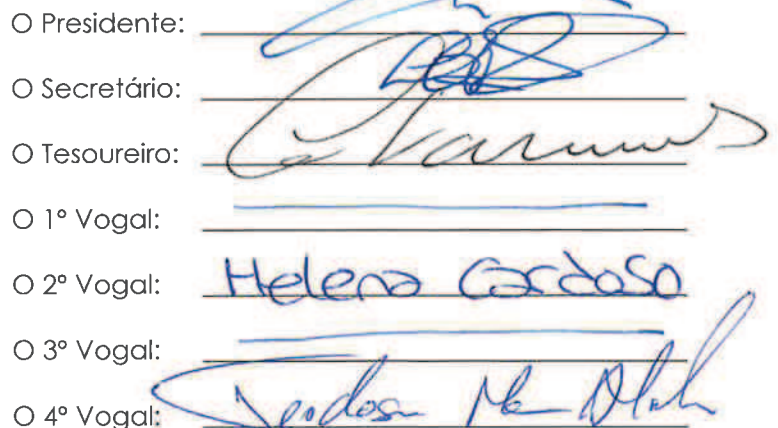 O Presidente:
O Secretário:
O Tesoureiro:
O 1º Vogal:
O 2º Vogal: Helena Cardoso
O 3º Vogal:
O 4º Vogal: